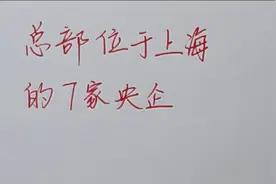 总部位于上海
的7家央企